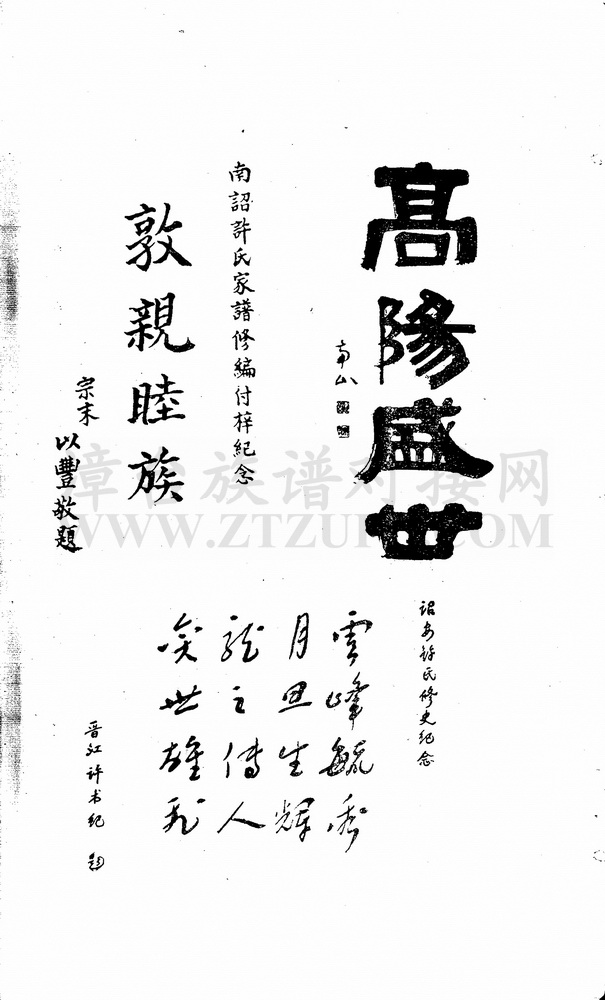 高陽盛世
南山
南詔許氏家譜修編付梓紀念
敦親睦族
宗末
以豐敬題
诏安许氏修史纪念
雲峰毓秀
月旦生輝
龍之傳人
奕世雄飛
晋江许书纪 题
族谱对接网
WWW.ZTZUP